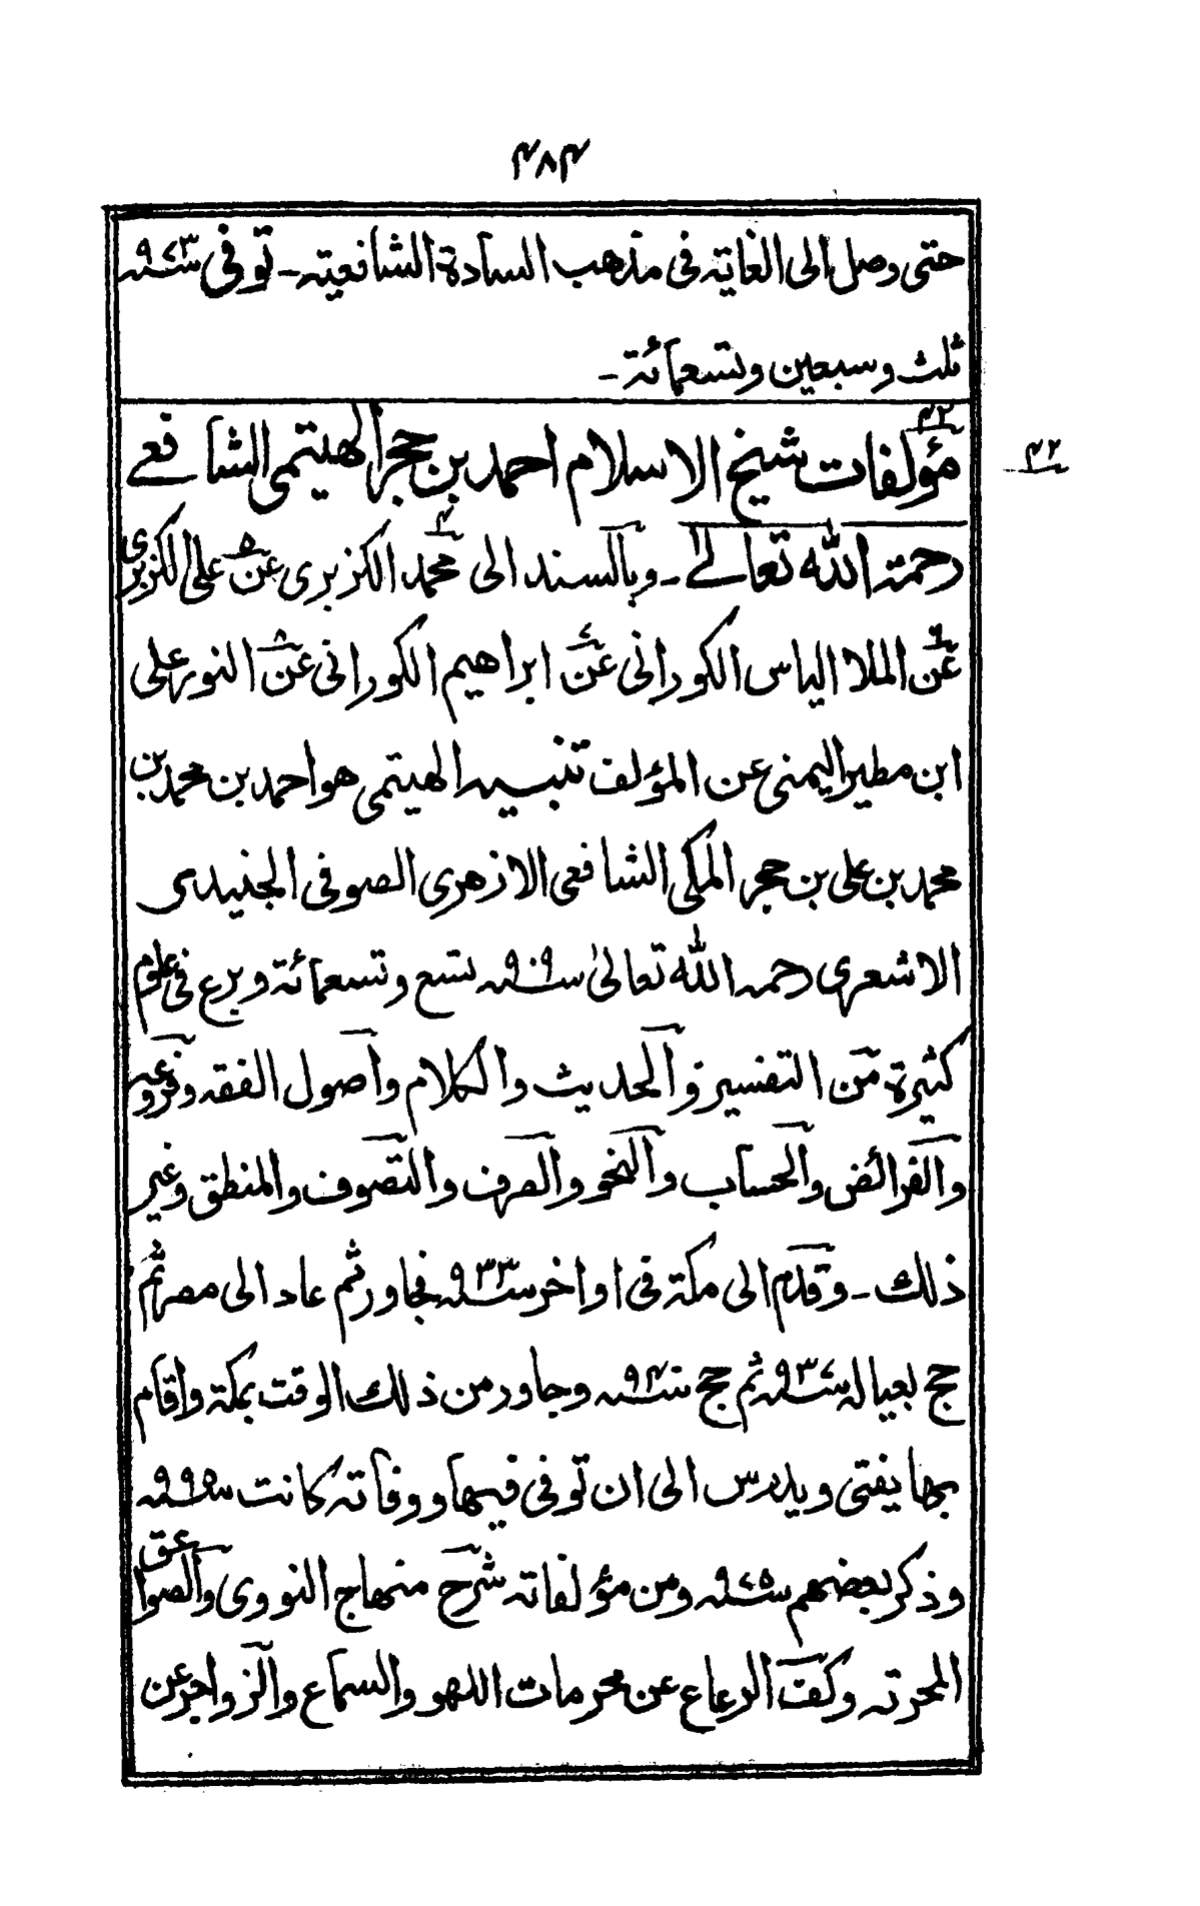 ۴۸۴
حتی وصل الی الغایته فی مذهب السادة الشافعیته ـ توفی ۹۷۳ سنه
ثلث وسبعین وتسعمائة ـ
۴۲
مؤلفات شیخ الاسلام احمد بن حجر الهیتمی الشافعے
۴۲
رحمته الله تعالےٰ ـ وبالسند الی محمد۴ الکزبری عن۵ علی الکزبری
عن۶ الملا الیاس الکورانی عن۷ ابراهیم الکورانی عن۸ النور علی
ابن مطیر الیمنی عن المؤلف تنبیه الهیتمی هو احمد بن محمد بن
محمد بن علی بن حجر المکی الشافعی الازهری الصوفی الجنیدی
الاشعری رحمه الله تعالیٰ سنه ۹۰۹ تسع وتسعمائة وبرع فی علوم
کثیرة من التفسیر والحدیث والکلام واصول الفقه وفروعه
والفرائض والحساب والنحو والصرف والتصوف والمنطق وغیر
ذلک ـ وقدم الی مکة فی اواخر سنه ۹۳۳ فجاور ثم عاد الی مصر ثم
حج بعیاله سنه ۹۳۷ ثم حج سنه ۹۴۰ وجاور من ذلک الوقت بمکة واقام
بها یفتی ویدرس الی ان توفی فیها ووفاته کانت سنه ۹۹۵
وذکر بعضهم سنه ۹۷۵ ومن مؤلفاته شرح منهاج النووی والصواعق
المحرته وکف الرعاع عن محرمات اللهو والسماع والزواجر عن